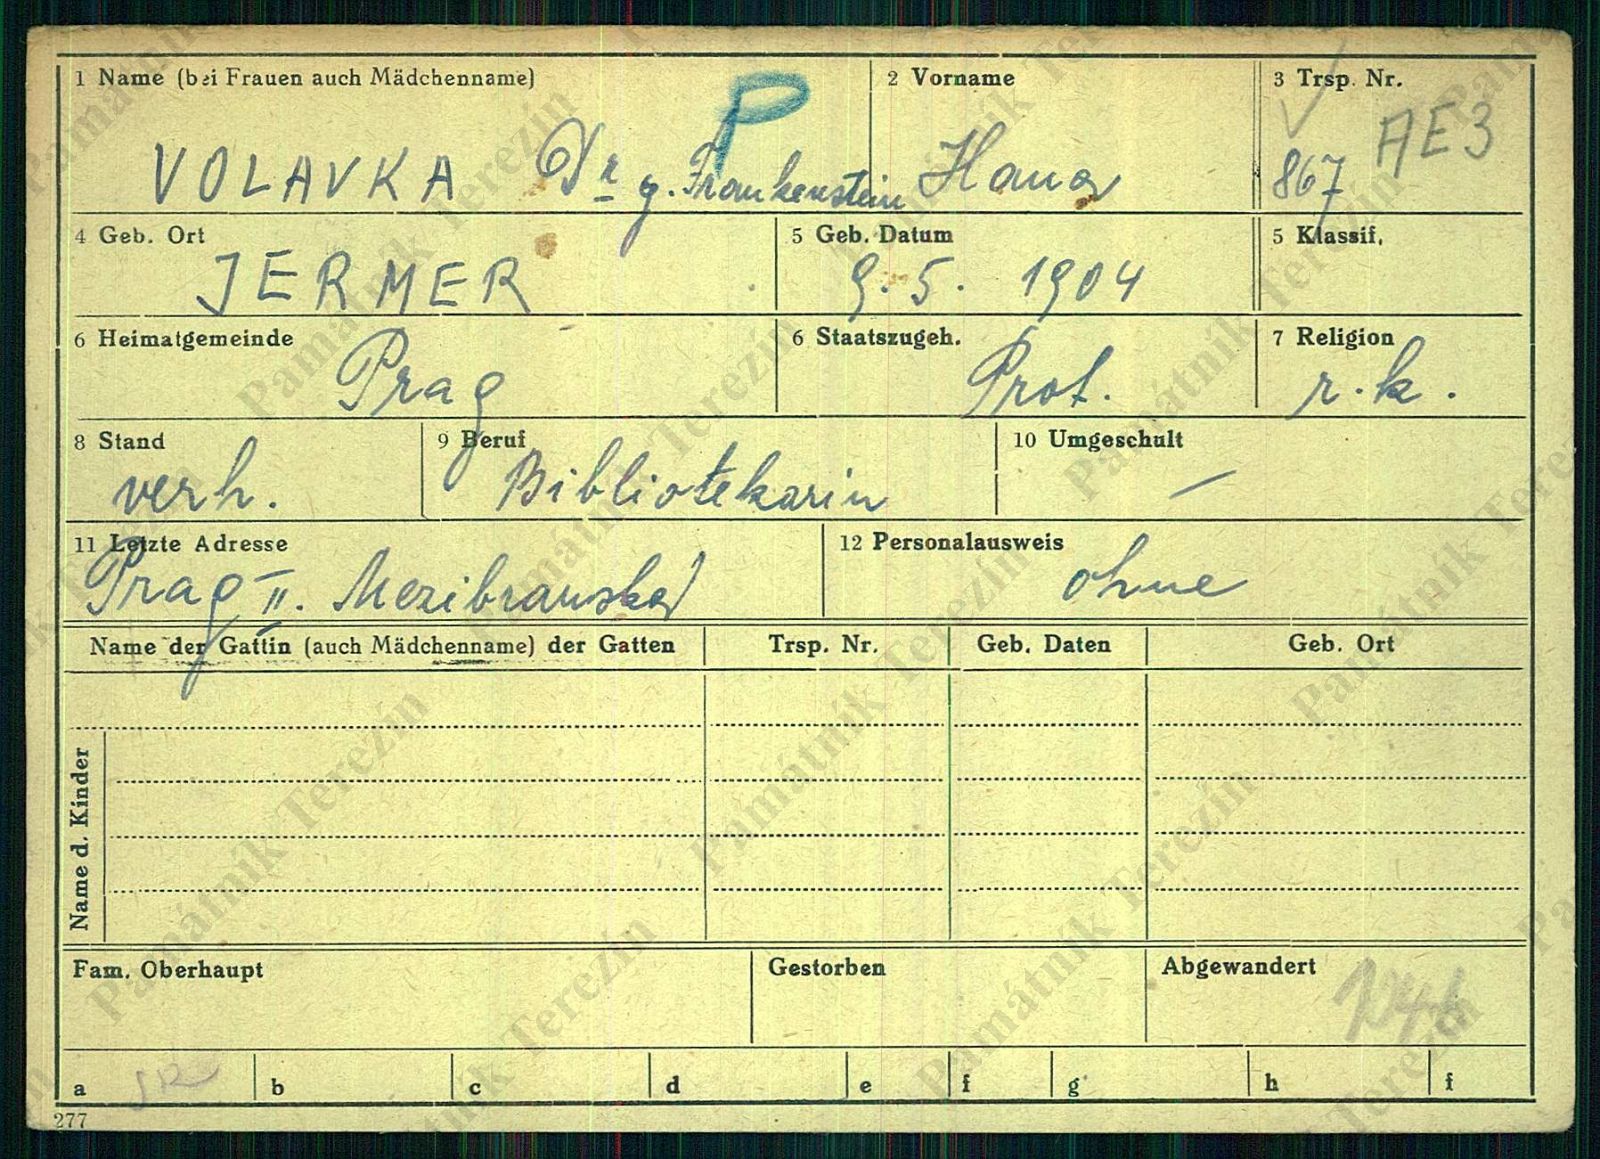 1 Name (bei Frauen auch Mädchenname)
P
2 Vorname
3 Trsp. Nr.
VOLAVKA Dr g. Frankenstein
Hana
867 AE3
4 Geb. Ort
5 Geb. Datum
5 Klassif.
JERMER
9.5. 1904
6 Heimatgemeinde
6 Staatszugeh.
7 Religion
Prag
Prot.
r.k.
8 Stand
9 Beruf
10 Umgeschult
verh.
Bibliotekarin
—
11 Letzte Adresse
12 Personalausweis
Prag II. Mezibranská 1
ohne
Name der Gattin (auch Mädchenname) der Gatten
Trsp. Nr.
Geb. Daten
Geb. Ort
Name d. Kinder
Fam. Oberhaupt
Gestorben
Abgewandert
a
b
c
d
e
f
g
h
f
277
Památník Terezín